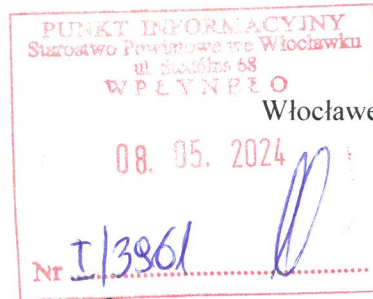 PUNKT INFORMACYJNY
Starostwo Powiatowe we Włocławku
ul. Stodólna 68
WPŁYNĘŁO
Włocławe
08. 05. 2024
Nr I/3961